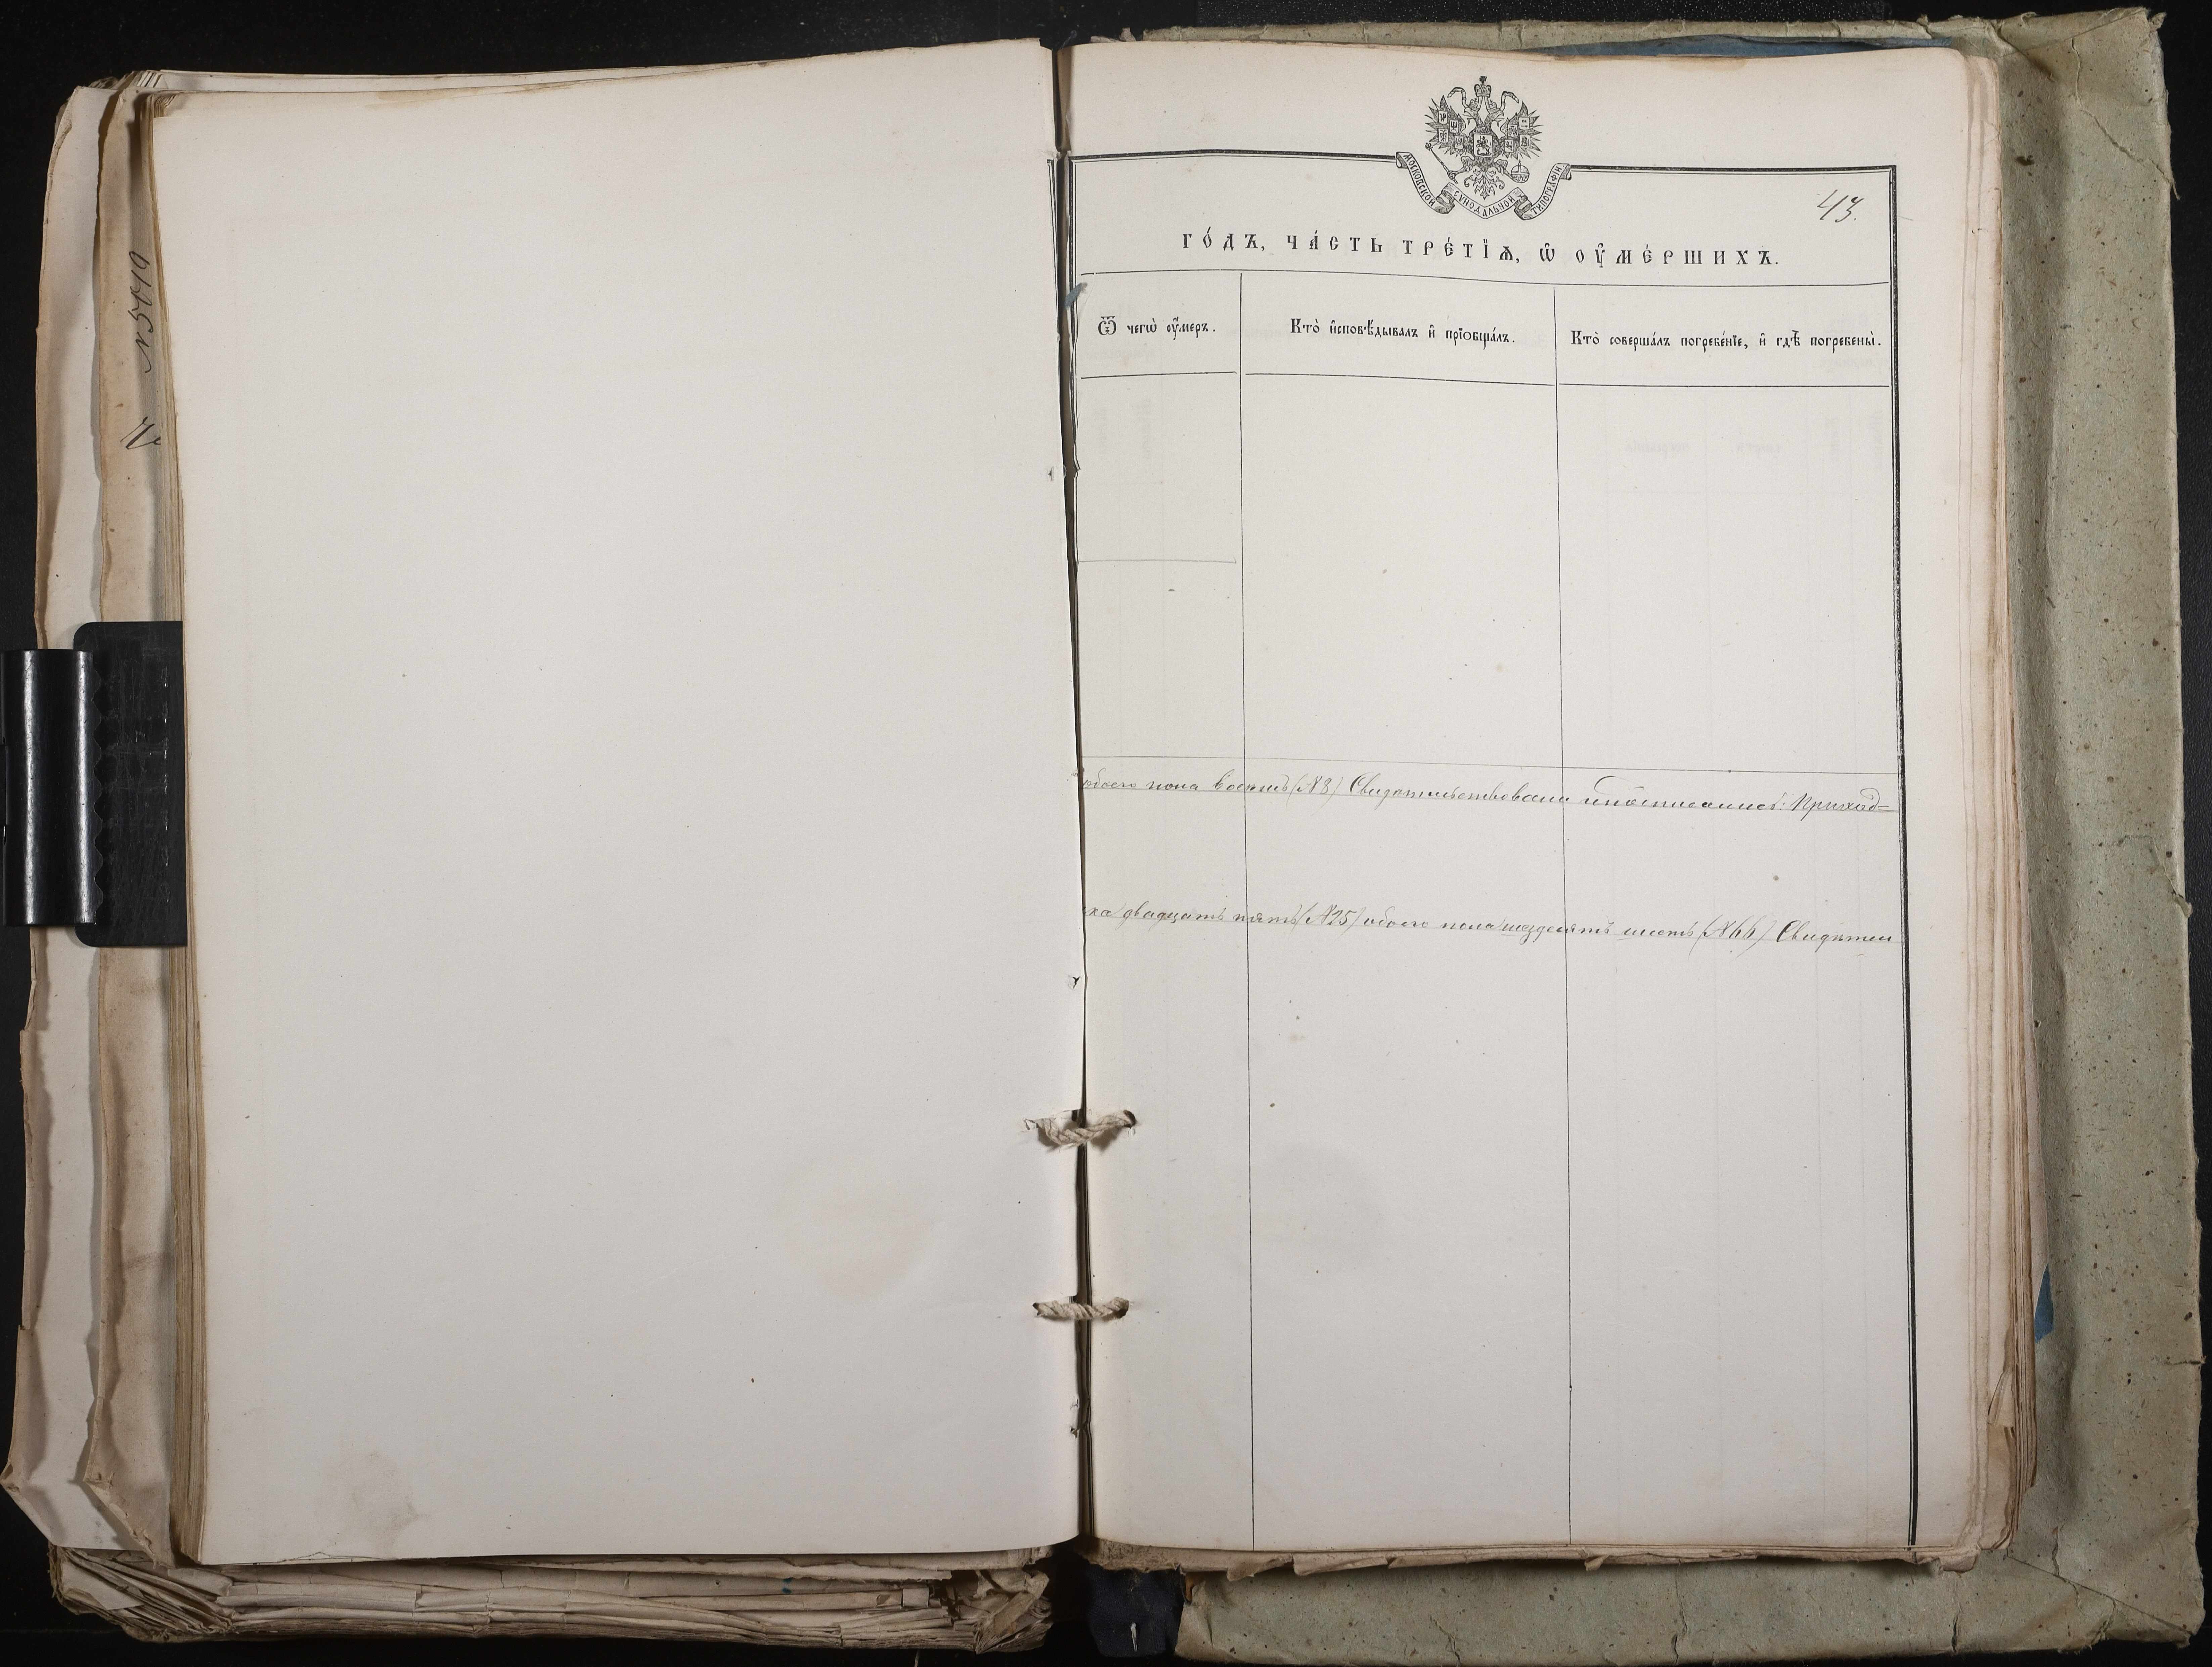 № 5019
МОСКОВСКОЙ СѴНОДАЛЬНОЙ ТИПОГРАФІИ
43.
ГО́ДЪ, ЧА́СТЬ ТРЕ́ТЇѦ, Ѡ҆ ОУ҆МЕ́РШИХЪ.
Ѿ чегѡ̀ оу҆́меръ.
Кто̀ и҆сповѣ́дывалъ и҆ прїобща́лъ.
Кто̀ соверша́лъ погребе́нїе, и҆ гдѣ̀ погребены̀.
обоего пола восемь (№ 8) Свидѣтельствовали и подписались: Приход=
ска двадцать пять (№ 25) обоего пола шездесять шесть (№ 66) Свидѣтел